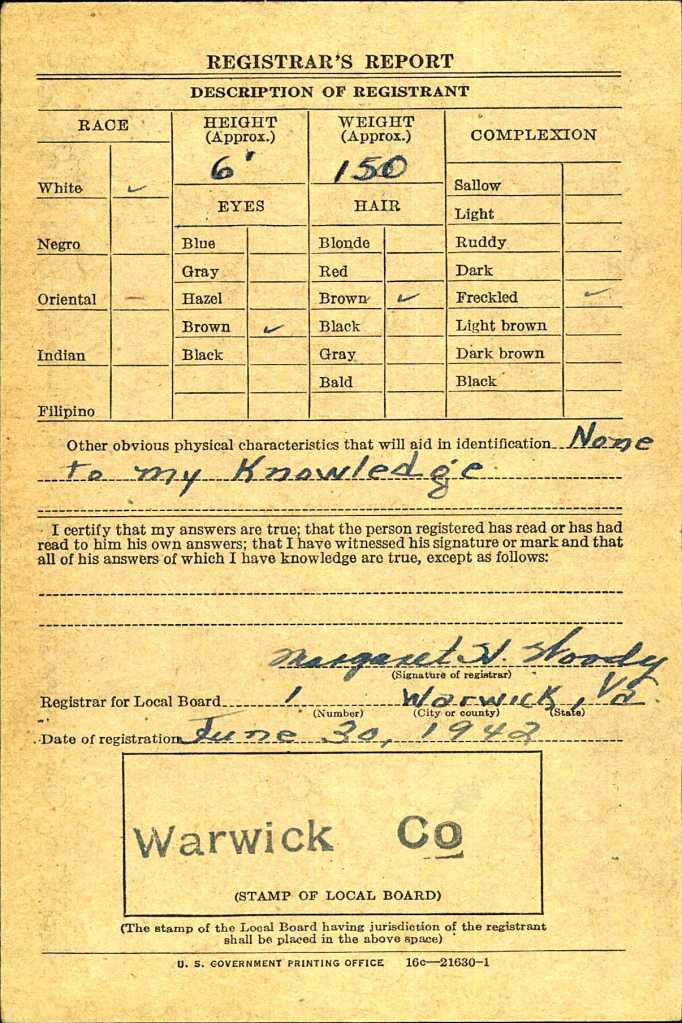 REGISTRAR'S REPORT
DESCRIPTION OF REGISTRANT
RACE
HEIGHT
(Approx.)
WEIGHT
(Approx.)
COMPLEXION
6'
150
White ✓
Sallow
EYES
HAIR
Light
Negro
Blue
Blonde
Ruddy
Gray
Red
Dark
Oriental
Hazel
Brown ✓
Freckled ✓
Brown ✓
Black
Light brown
Indian
Black
Gray
Dark brown
Bald
Black
Filipino
Other obvious physical characteristics that will aid in identification None
to my Knowledge
I certify that my answers are true; that the person registered has read or has had
read to him his own answers; that I have witnessed his signature or mark and that
all of his answers of which I have knowledge are true, except as follows:
Margaret
(Signature of registrar)
Registrar for Local Board 1 Warwick, Va
(Number) (City or county) (State)
Date of registration June 30, 1942
Warwick Co
(STAMP OF LOCAL BOARD)
(The stamp of the Local Board having jurisdiction of the registrant
shall be placed in the above space)
U. S. GOVERNMENT PRINTING OFFICE 16c—21630-1